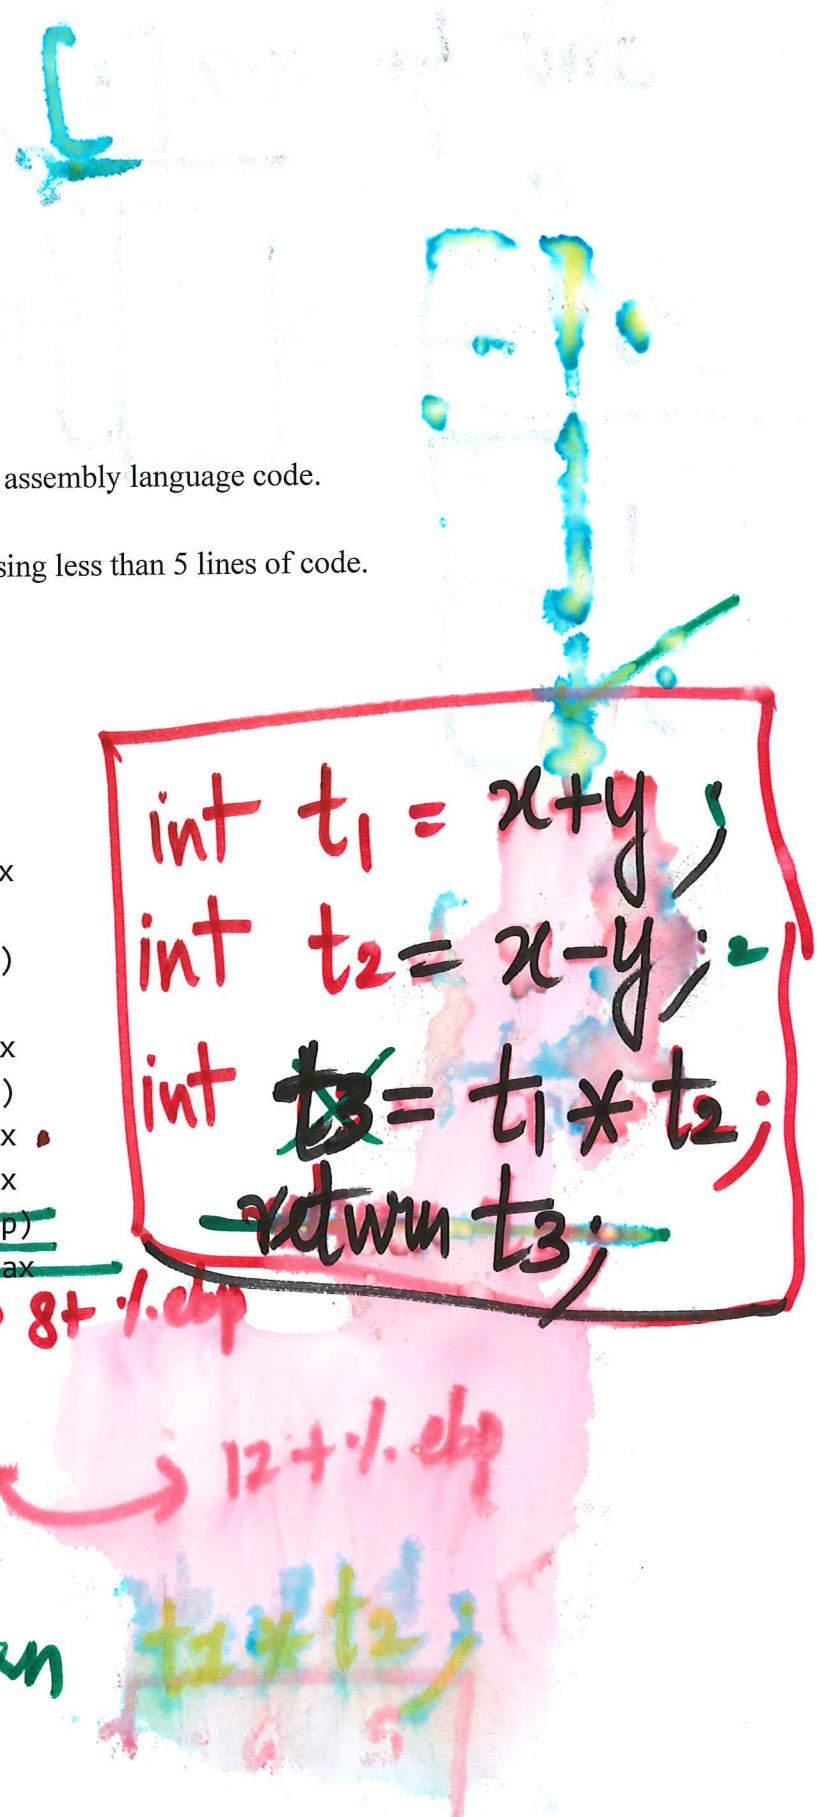 assembly language code.
sing less than 5 lines of code.
int t1 = x+y;
x
int t2 = x-y; 2
)
x
int t3 = t1 * t2;
)
x
x
return t3;
p)
ax
8+ %.ebp
12+%.ebp
t1 * t2;